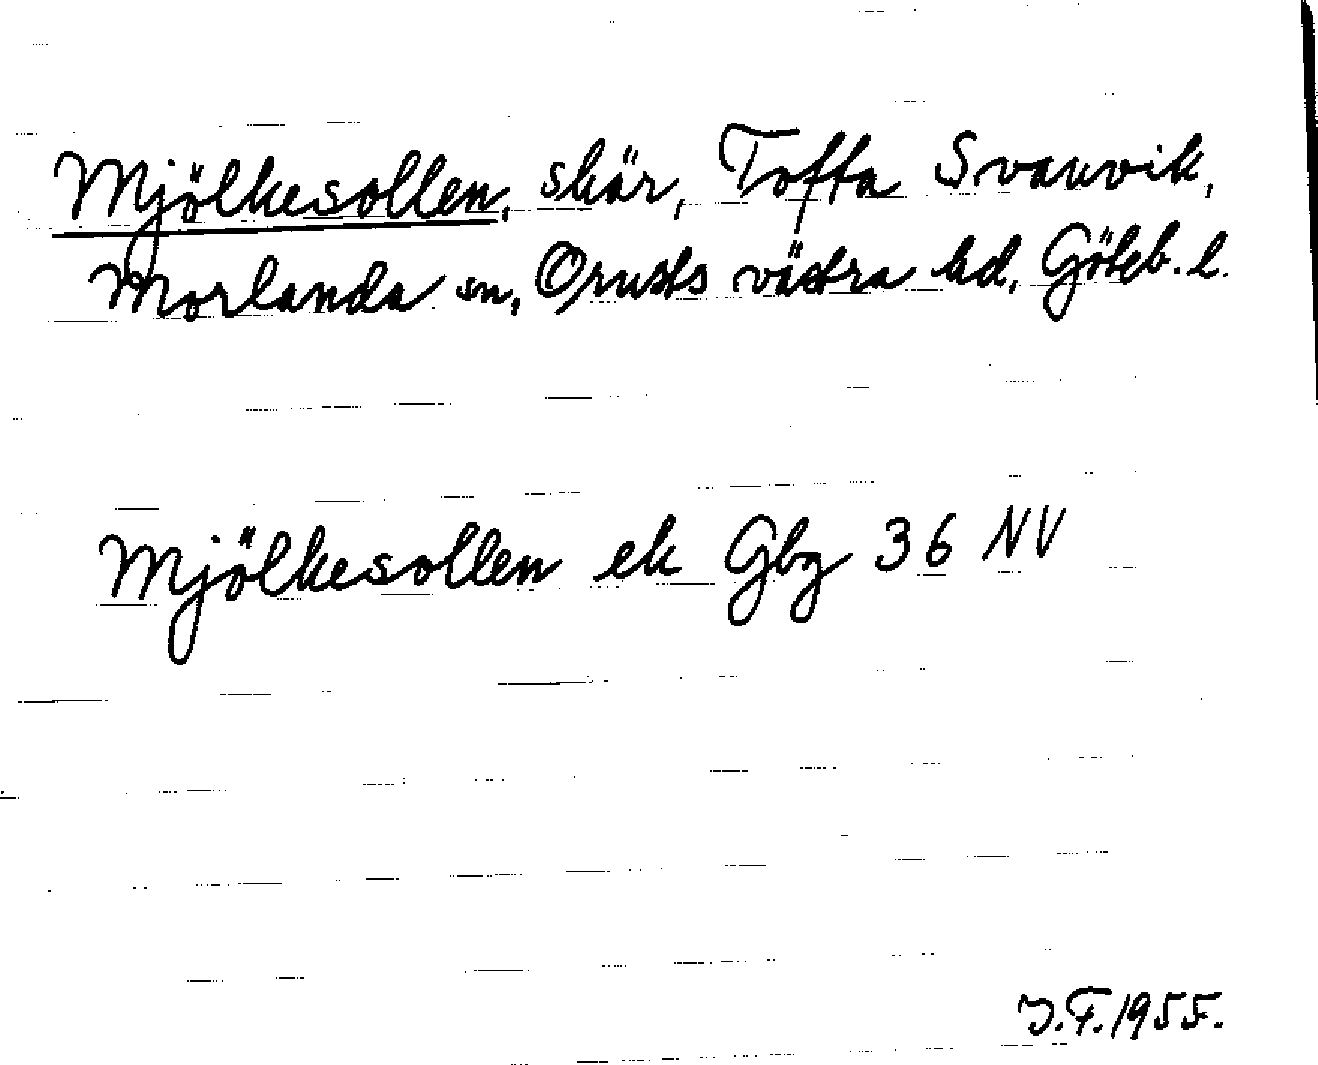 Mjölkesollen, skär, Toffa Svanvik,
Morlanda sn, Orusts västra hd, Göteb. l.
Mjölkesollen ek Gbg 36 NV
J.F. 1955.